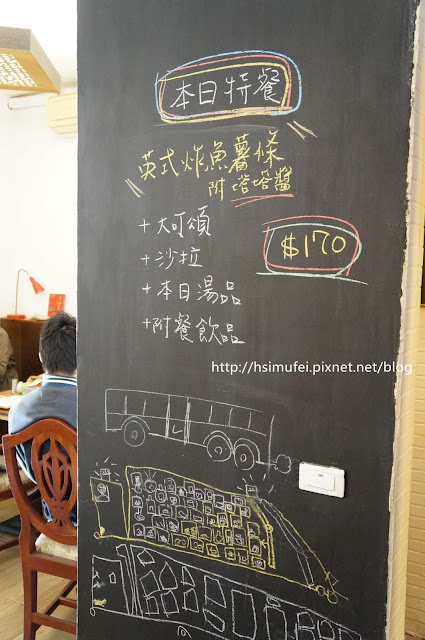 本日特餐
英式炸魚薯條
附塔塔醬
+大可頌
+沙拉
+本日湯品
+附餐飲品
$170
http://hsimufei.pixnet.net/blog